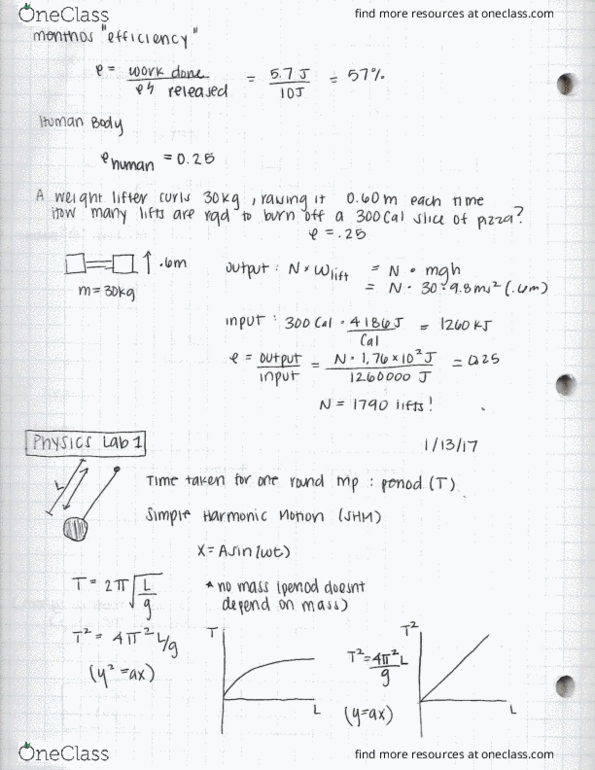 OneClass
find more resources at oneclass.com
"efficiency"
e = work done / released = 5.7 J / 10J = 57%
Human Body
e human = 0.25
A weight lifter curls 30kg , raising it 0.60m each time
How many lifts are rqd to burn off a 300 Cal slice of pizza?
e = .25
.6m
m = 30kg
output : N × W lift = N • mgh
= N • 30 • 9.8 ms² (.6m)
input : 300 Cal • 4186 J / Cal = 1260 kJ
e = output / input = N • 1,76 × 10² J / 1260000 J = 0.25
N = 1790 lifts!
Physics Lab 1
1/13/17
L
Time taken for one round trip : period (T)
Simple Harmonic Motion (SHM)
X = Asin(ωt)
T = 2π √ L / g
* no mass (period doesnt
depend on mass)
T² = 4π² L/g
(y² = ax)
T
L
T² = 4π² L / g
(y = ax)
T²
L
OneClass
find more resources at oneclass.com